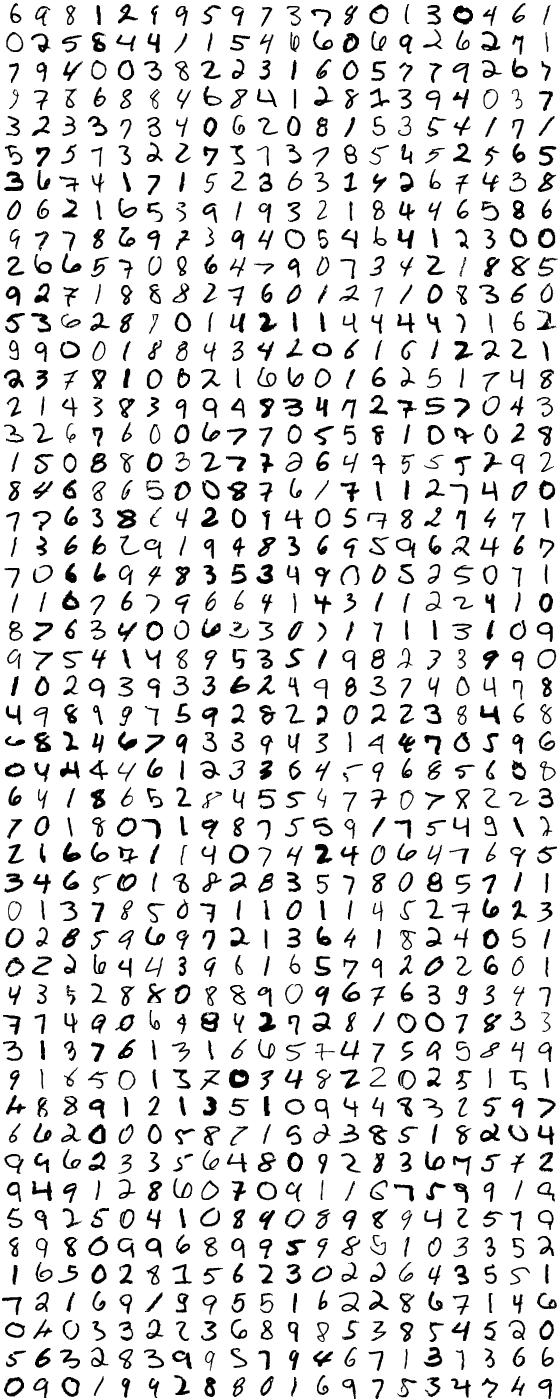 6 9 8 1 2 9 9 5 9 7 3 7 8 0 1 3 0 4 6 1
0 2 5 8 4 4 1 1 5 4 6 6 0 6 9 2 6 2 7 1
7 9 4 0 0 3 8 2 2 3 1 6 0 5 7 7 9 2 6 7
9 7 8 6 8 8 4 6 8 4 1 2 8 1 3 9 4 0 3 7
3 2 3 3 7 3 4 0 6 2 0 8 1 5 3 5 4 1 7 1
5 7 5 7 3 2 2 7 3 7 3 7 8 5 4 5 2 5 6 5
3 6 7 4 1 7 1 5 2 3 6 3 1 4 2 6 7 4 3 8
0 6 2 1 6 5 3 9 1 9 3 2 1 8 4 4 6 5 8 6
9 7 7 8 6 9 7 3 9 4 0 5 4 6 4 1 2 3 0 0
2 6 6 5 7 0 8 6 4 7 9 0 7 3 4 2 1 8 8 5
9 2 7 1 8 8 8 2 7 6 0 1 2 7 1 0 8 3 6 0
5 3 6 2 8 7 0 1 4 2 1 1 4 4 4 4 7 1 6 2
9 9 0 0 1 8 8 4 3 4 2 0 6 1 6 1 2 2 2 1
2 3 7 8 1 0 0 2 1 6 6 0 1 6 2 5 1 7 4 8
2 1 4 3 8 3 9 9 4 8 3 4 7 2 7 5 7 0 4 3
3 2 6 7 6 0 0 6 7 7 0 5 5 8 1 0 7 0 2 8
1 5 0 8 8 0 3 2 7 7 2 6 4 7 5 5 5 2 9 2
8 4 6 8 6 5 0 0 8 7 6 1 7 1 1 2 7 4 0 0
7 7 6 3 8 6 4 2 0 9 4 0 5 7 8 2 7 4 7 1
1 3 6 6 2 9 1 9 4 8 3 6 9 5 9 6 2 4 6 7
7 0 6 6 9 4 8 3 5 3 4 9 0 0 5 2 5 0 7 1
1 1 0 7 6 7 9 6 6 4 1 4 3 1 1 2 2 4 1 0
8 7 6 3 4 0 0 6 3 3 0 7 1 7 1 1 3 1 0 9
9 7 5 4 1 4 8 9 5 3 5 1 9 8 2 3 3 9 9 0
1 0 2 9 3 9 3 3 6 2 4 9 8 3 7 4 0 4 7 8
4 9 8 1 9 7 5 9 2 8 2 2 0 2 2 3 8 4 6 8
6 8 2 4 6 7 9 3 3 9 4 3 1 4 4 7 0 5 9 6
0 4 4 4 4 6 1 2 3 3 6 4 5 9 6 8 5 6 0 8
6 4 1 8 6 5 2 8 4 5 5 4 7 7 0 7 8 2 2 3
7 0 1 8 0 7 1 9 8 7 5 5 9 1 7 5 4 9 1 2
2 1 6 6 7 1 1 4 0 7 4 2 4 0 6 4 7 6 9 5
3 4 6 5 0 1 8 8 2 8 3 5 7 8 0 8 5 7 1 1
0 1 3 7 8 5 0 7 1 1 0 1 1 4 5 2 7 6 2 3
0 2 8 5 9 6 9 7 2 1 3 6 4 1 8 2 4 0 5 1
0 2 2 6 4 4 3 9 6 1 6 5 7 9 2 0 2 6 0 1
4 3 5 2 8 8 0 8 8 9 0 9 6 7 6 3 9 3 4 7
7 7 4 9 0 6 4 8 4 2 7 2 8 1 0 0 7 8 3 3
3 1 3 7 6 1 3 1 6 6 5 7 4 7 5 9 5 8 4 9
9 1 6 5 0 1 3 7 0 3 4 8 2 2 0 2 5 1 5 1
4 8 8 9 1 2 1 3 5 1 0 9 4 4 8 3 2 5 9 7
6 6 2 0 0 0 5 8 7 1 5 2 3 8 5 1 8 2 0 4
9 9 6 2 3 3 5 6 4 8 0 9 2 8 3 6 7 5 7 2
9 4 9 1 2 8 6 0 7 0 9 1 1 6 7 5 9 9 1 9
5 9 2 5 0 4 1 0 8 9 0 8 9 8 9 4 2 5 7 9
8 9 8 0 9 9 6 8 9 9 5 9 8 5 1 0 3 3 5 2
1 6 5 0 2 8 1 5 6 2 3 0 2 2 6 4 3 5 5 1
7 2 1 6 9 1 9 9 5 5 1 6 2 2 8 6 7 1 4 6
0 4 0 3 3 2 2 3 6 8 9 8 5 3 8 5 4 5 2 0
5 6 3 2 8 3 9 9 5 7 9 4 6 7 1 3 1 3 6 6
0 9 0 1 9 4 2 8 8 0 1 6 9 7 5 3 4 7 4 9